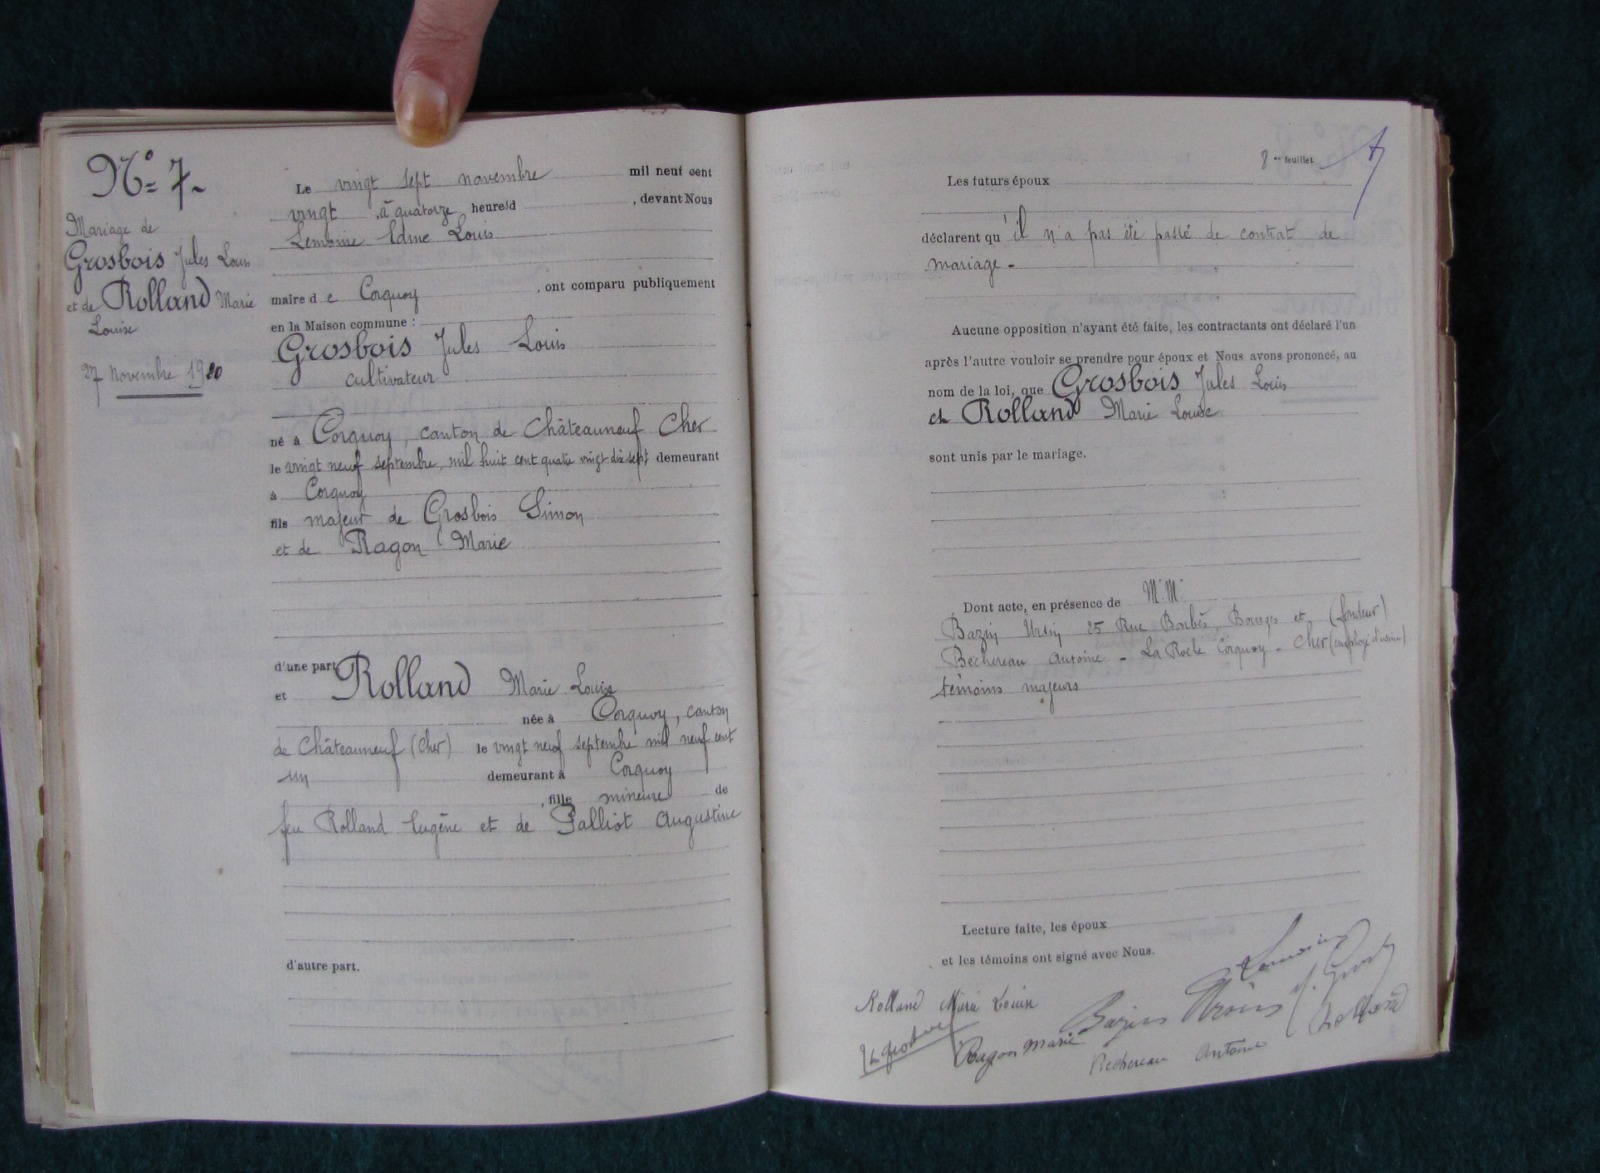 N° 7.
Mariage de
Grosbois Jules Louis
et de Rolland Marie
Louise
27 novembre 1920
Le vingt sept novembre mil neuf cent
vingt à quatorze heures d , devant Nous
Lemoine Edme Louis
maire de Corquoy , ont comparu publiquement
en la Maison commune :
Grosbois Jules Louis
cultivateur
né à Corquoy, canton de Châteauneuf Cher
le vingt neuf septembre, mil huit cent quatre vingt dix sept demeurant
à Corquoy
fils majeur de Grosbois Simon
et de Ragon Marie
d'une part
et Rolland Marie Louise
née à Corquoy, canton
de Châteauneuf (Cher) le vingt neuf septembre mil neuf cent
un demeurant à Corquoy
, fille mineure de
feu Rolland Eugène et de Palliot Augustine
d'autre part.
8me feuillet
Les futurs époux
déclarent qu'il n'a pas été passé de contrat de
mariage -
Aucune opposition n'ayant été faite, les contractants ont déclaré l'un
après l'autre vouloir se prendre pour époux et Nous avons prononcé, au
nom de la loi, que Grosbois Jules Louis
et Rolland Marie Louise
sont unis par le mariage.
Dont acte, en présence de M.M.
Bazin Ursin 25 Rue Barbès, Bourges et (fondeur)
Bechereau Antoine - La Roche Corquoy - Cher (employé d'usine)
témoins majeurs
Lecture faite, les époux
et les témoins ont signé avec Nous.
Lemoine
Rolland Marie Louise
Bazin Ursin
Ragon Marie
Bechereau Antoine
Rolland